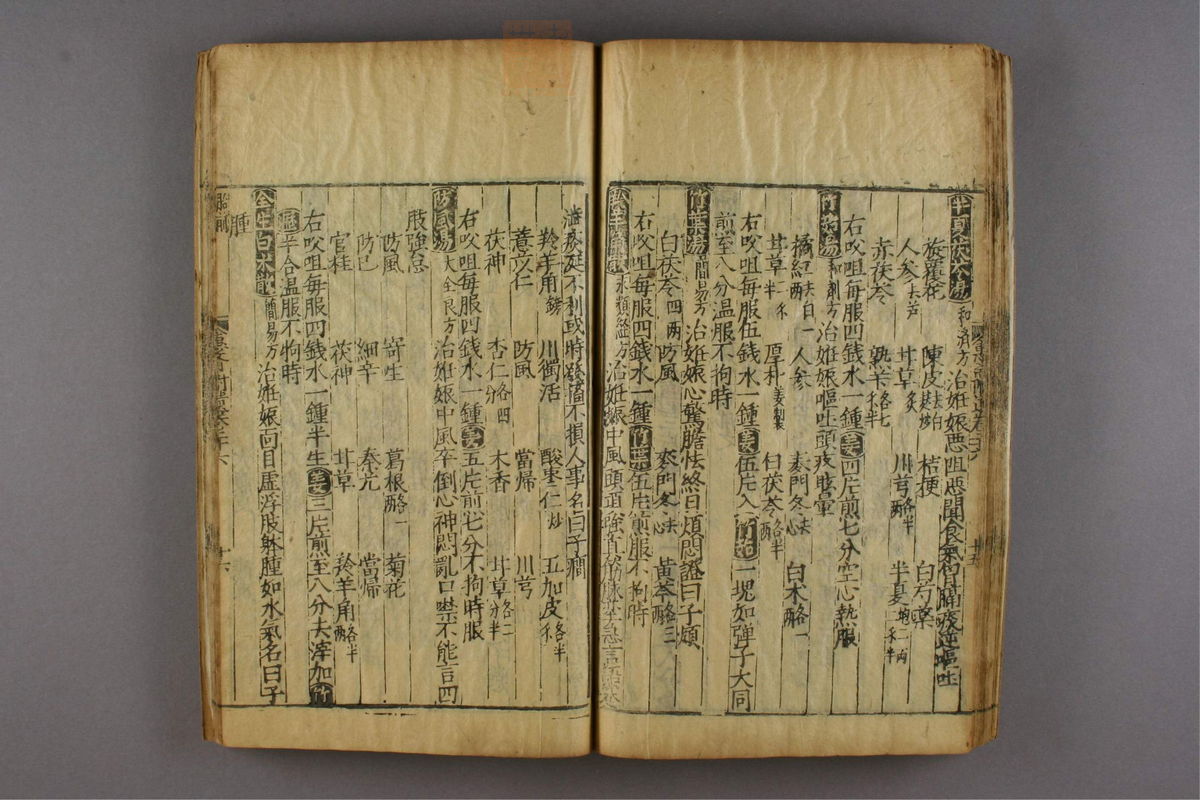 半夏茯苓湯 和濟方 治姙娠惡阻惡聞食氣胷膈痰逆嘔吐
旋覆花 陳皮 桔梗 白芍藥
人参去芦 甘草炙 川芎各半兩 半夏
赤茯苓 熟苄各七
右㕮咀每服四錢水一鍾姜四片煎七分空心熱服
竹茹湯 和劑方 治姙娠嘔吐頭疼眩暈
橘紅去白一兩 人参 麦門冬去心 白术各一兩
甘草 厚朴姜製 白茯苓各半兩
右㕮咀每服伍錢水一鍾姜伍片入竹茹一塊如弾子大同
煎至八分温服不拘時
竹葉湯 簡易方 治姙娠心驚膽怯終日煩悶證曰子煩
白茯苓四兩 防風 麥門冬去心 黄芩各三兩
右㕮咀每服四錢水一鍾竹葉伍片煎服不拘時
羚羊角散 治姙娠中風頭項強直筋脉急言語蹇
澁痰涎不利或時發搐不損人事名曰子癎
羚羊角鎊 川獨活 酸棗仁炒 五加皮各半
薏苡仁 防風 當帰 川芎
茯神 杏仁各四分 木香 甘草各二分半
右㕮咀每服四錢水一鍾姜五片煎七分不拘時服
防風湯 大全良方 治姙娠中風卒倒心神悶亂口噤不能言四
肢強急
防風 寄生 葛根各一兩 菊花
防已 細辛 秦艽 當帰
官桂 茯神 甘草 羚羊角各半兩
右㕮咀每服四錢水一鍾半生姜三片煎至八分去滓加竹
瀝半合温服不拘時
全生白朮散 簡易方 治姙娠面目虚浮肢躰腫如水氣名曰子
腫